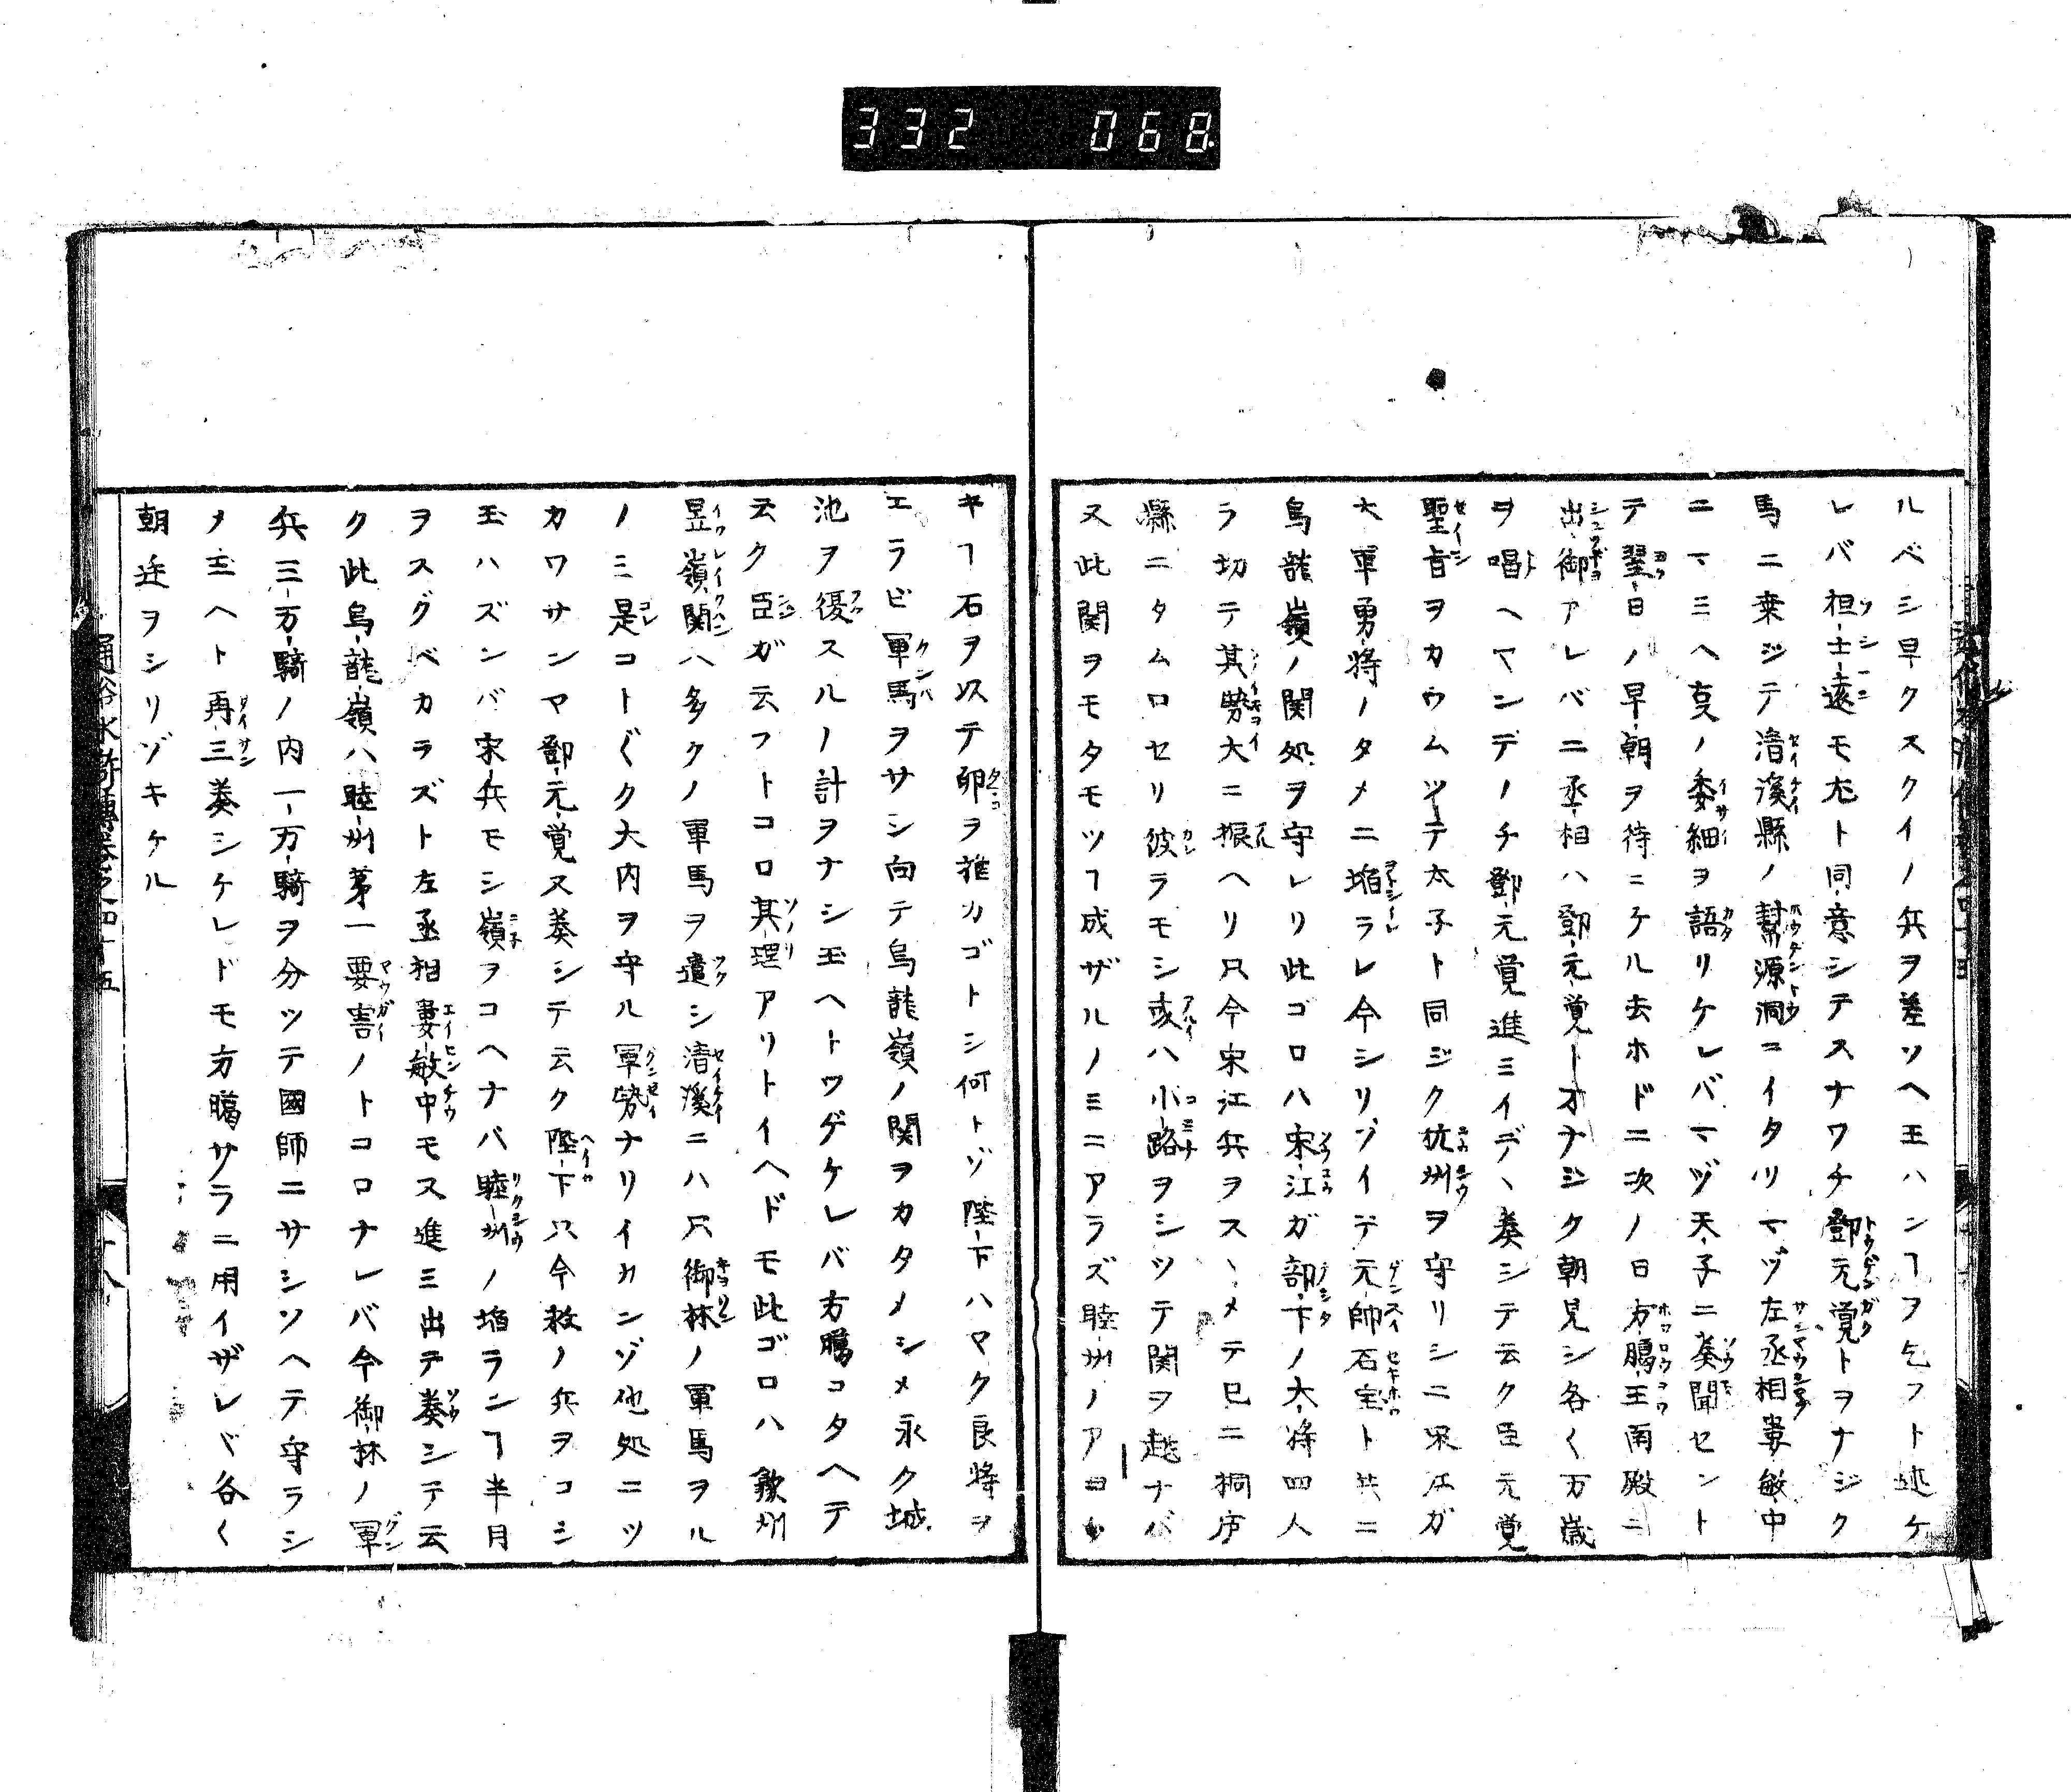 332 068
ルベシ早クスクイノ兵ヲ差ソヘ玉ハンヿヲ乞フト述ケ
レバ祖士遠モ尤ト同意シテスナワチ鄧元覚トヲナジク
馬ニ乗ジテ清溪縣ノ幇源洞ニイタリマヅ左丞相婁敏中
ニマミヘ㕝ノ委細ヲ語リケレバマヅ天子ニ奏聞セント
テ翌日ノ早朝ヲ待ニケル去ホドニ次ノ日方臈王南殿ニ
出御アレバ二丞相ハ鄧元覚トオナジク朝見シ各〱万歳
ヲ唱ヘヤンデノチ鄧元覚進ミイデヽ奏シテ云ク臣元覚
聖旨ヲカウムツテ太子ト同ジク杭州ヲ守リシニ宋江ガ
大軍勇将ノタメニ堕ラレ今シリゾイテ元帥石宝ト共ニ
烏龍嶺ノ関処ヲ守レリ此ゴロハ宋江ガ部下ノ大将四人
ラ切テ其勢大ニ振ヘリ只今宋江兵ヲスヽメテ已ニ桐庐
縣ニタムロセリ彼ラモシ或ハ小路ヲシツテ関ヲ越ナバ
又此関ヲモタモツヿ成ザルノミニアラズ睦州ノアヨウ
キヿ石ヲ以テ卵ヲ推カゴトシ何トゾ陛下ハヤク良将ヲ
エラビ軍馬ヲサシ向テ烏龍嶺ノ関ヲカタメシメ永ク城
池ヲ復スルノ計ヲナシ玉ヘトツゲケレバ方臈コタヘテ
云ク臣ガ云フトコロ其理アリトイヘドモ此ゴロハ歙州
昱嶺関ハ多クノ軍馬ヲ遣シ清溪ニハ只御林ノ軍馬ヲル
ノミ是コト〲ク大内ヲ守ル軍勢ナリイカンゾ他処ニツ
カワサンヤ鄧元覚又奏シテ云ク陛下只今救ノ兵ヲコシ
玉ハズンバ宋兵モシ嶺ヲコヘナバ睦州ノ堕ランヿ半月
ヲスグベカラズト左丞相婁敏中モス進ミ出テ奏シテ云
ク此烏龍嶺ハ睦州第一要害ノトコロナレバ今御林ノ軍
兵三万騎ノ内一万騎ヲ分ツテ國師ニサシソヘテ守ラシ
メ玉ヘト再三奏シケレドモ方臈サラニ用イザレバ各〱
朝廷ヲシリゾキケル
通俗水滸傳巻之四十五
十八